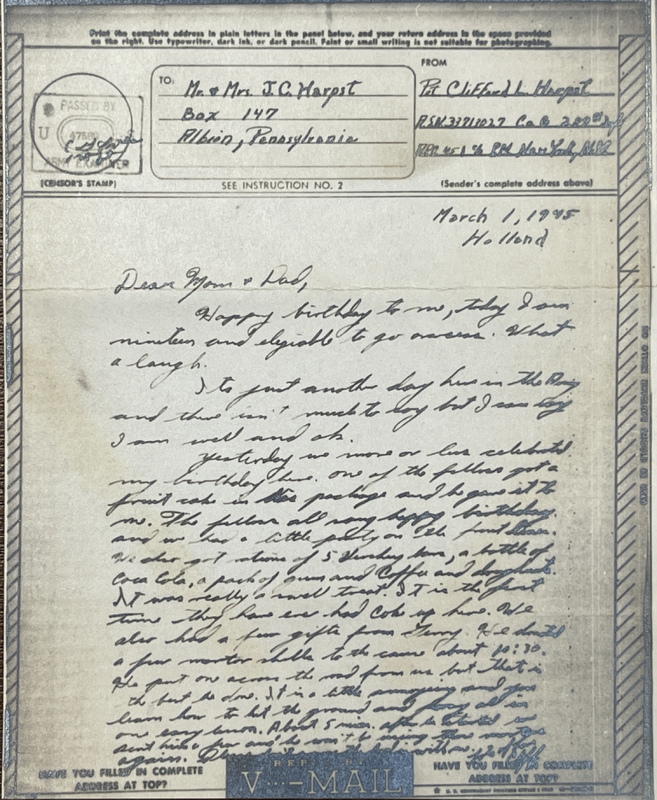 Print the complete address in plain letters in the panel below, and your return address in the space provided
on the right. Use typewriter, dark ink, or dark pencil. Faint or small writing is not suitable for photographing.
FROM
TO:
Mr. & Mrs. J.C. Harpst
Box 147
Albion, Pennsylvania
Pvt Clifford L. Harpst
Co G
New York,
PASSED BY
U
ARMY EXAMINER
(CENSOR'S STAMP)
SEE INSTRUCTION NO. 2
(Sender's complete address above)
March 1, 1945
Holland
Dear Mom & Dad,
Happy birthday to me, today I am
nineteen and eligiable to go overseas. What
a laugh.
It is just another day here in the Army
and there isn't much to say but I can say
I am well and ok.
Yesterday we more or less celebrated
my birthday here. One of the fellows got a
fruit cake in the package and he gave it to
me. The fellows all sang happy birthday
and we had a little party on the fruit
We also got rations of 5 Hershey bars, a bottle of
Coca Cola, a pack of gum and Coffee and doughnuts.
It was really a swell treat. It is the first
time they have ever had Coke up here. We
also had a few gifts from Jerry. He donated
a few mortar shells to the cause about 10:30.
He put one across the road from us but that is
the best he done. It is a little annoying and you
learn how to hit the ground and pray all in
one easy lesson. About 5 min. after he started we
sent him a few and he won't be using those
again.
HAVE YOU FILLED IN COMPLETE
ADDRESS AT TOP?
V···—MAIL
HAVE YOU FILLED IN COMPLETE
ADDRESS AT TOP?